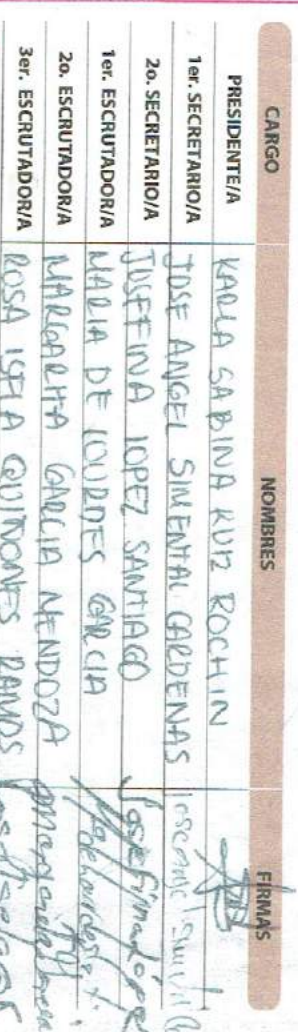 CARGO NOMBRES FIRMAS
PRESIDENTE/A KARLA SABINA RUIZ ROCHIN
1er. SECRETARIO/A JOSE ANGEL SIMENTAL CARDENAS
2o. SECRETARIO/A JOSEFINA LOPEZ SANTIAGO Josefina Lópe
1er. ESCRUTADOR/A MARIA DE LOURDES GARCIA
2o. ESCRUTADOR/A MARGARITA GARCIA MENDOZA
3er. ESCRUTADOR/A ROSA ISELA QUIÑONES RAMOS